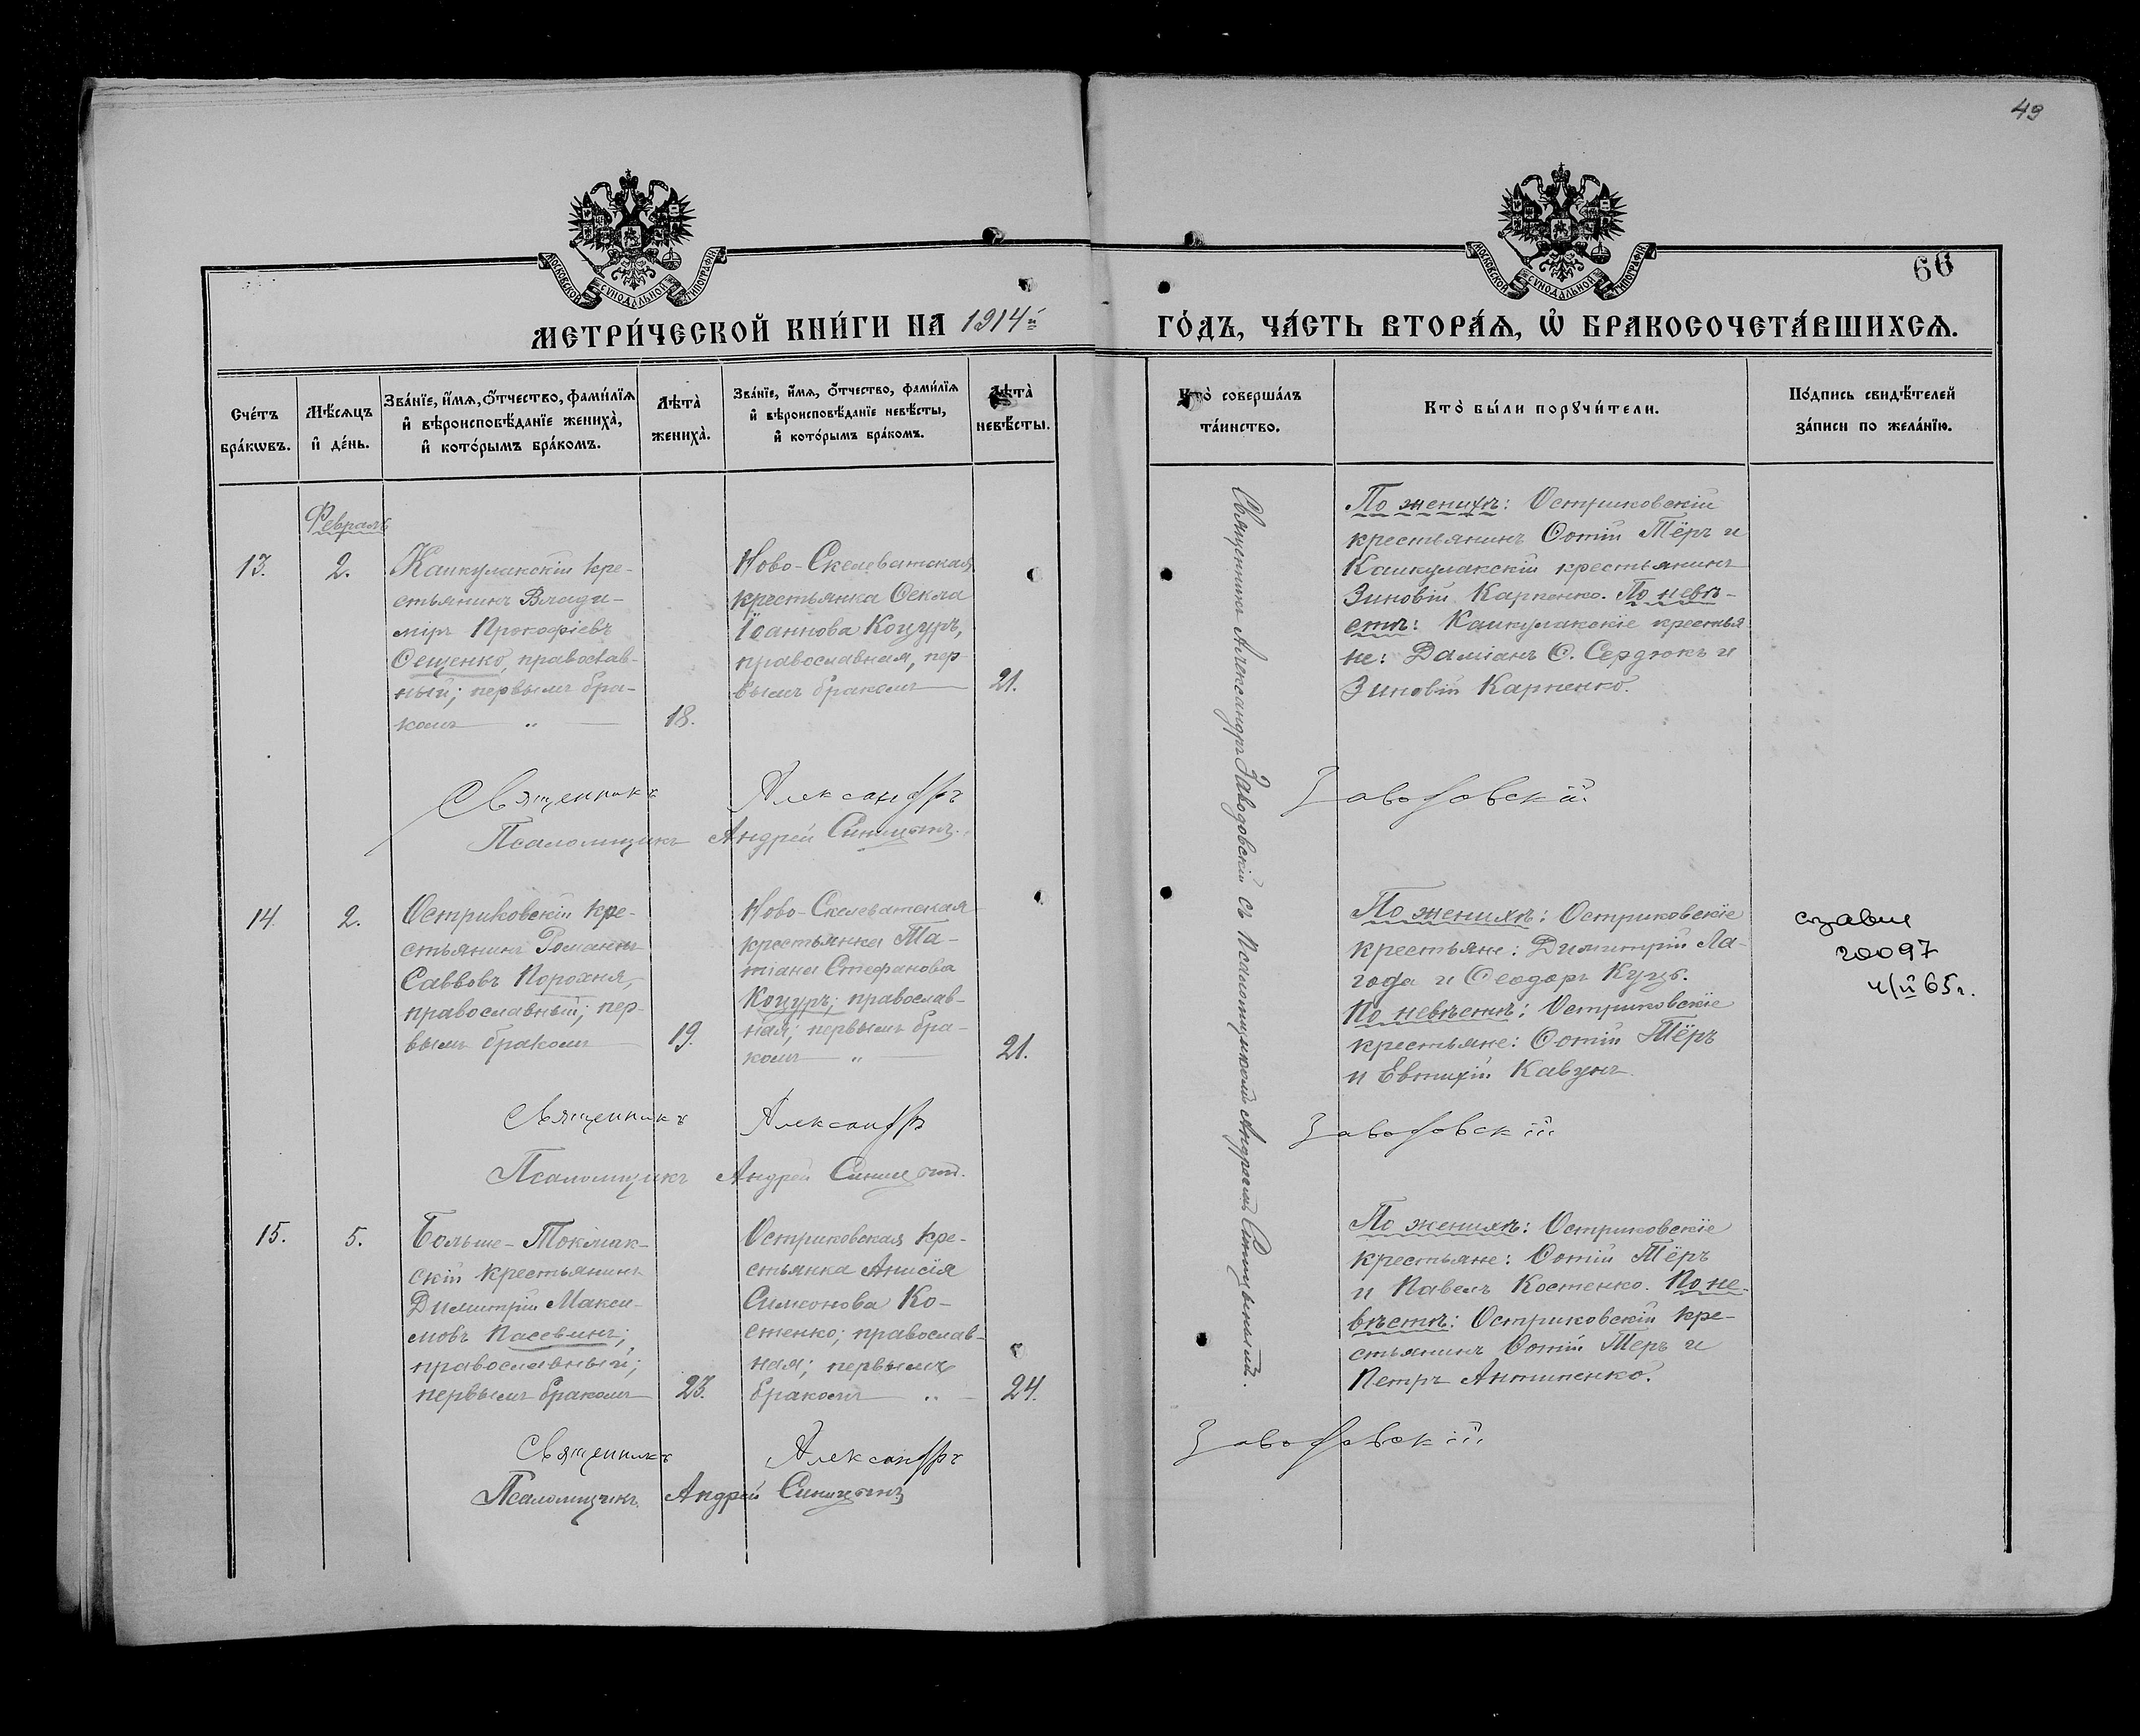 49
66
МОСКОВСКОЙ СУНОДАЛЬНОЙ ТИПОГРАФІИ
МОСКОВСКОЙ СУНОДАЛЬНОЙ ТИПОГРАФІИ
МЕТРИ́ЧЕСКОЙ КНИ́ГИ НА 1914й ГО́ДЪ, ЧА́СТЬ ВТОРА́Ѧ, Ѽ БРАКОСОЧЕТА́ВШИХСѦ.
Сче́тъ бра́кѡвъ.
Мѣ́сѧцъ и҆ де́нь.
Зва́нїе, и҆́мѧ, ѻ҆́тчество, фами́лїѧ и҆ вѣроисповѣ́данїе жениха̀, и҆ кото́рымъ бра́комъ.
Лѣта̀ жениха̀.
Зва́нїе, и҆́мѧ, ѻ҆́тчество, фами́лїѧ и҆ вѣроисповѣ́данїе невѣ́сты, и҆ кото́рымъ бра́комъ.
Лѣта̀ невѣ́сты.
Кто̀ соверша́лъ та́инство.
Кто̀ бы́ли порꙋчи́тели.
По́дпись свидѣ́телей за́писи по жела́нїю.
Февраль
13.
2.
Каикулакскій кре-
стьянинъ Влади-
міръ Прокофіевъ
Ѳещенко, православ-
ный; первымъ бра-
комъ — „ —
18.
Ново-Скелеватская
крестьянка Ѳекла
Іоаннова Коцуръ,
православная, пер-
вымъ бракомъ
21.
Священникъ Александръ Заводовскій съ Псаломщикомъ Андреемъ Синицынымъ.
По женихѣ: Остриковскій
крестьянинъ Фотій Тёръ и
Каикулакскій крестьянинъ
Зиновій Карпенко. По невѣ-
стѣ: Каикулакскіе крестья
не: Даміанъ Ѳ. Сердюкъ и
Зиновій Карпенко.
Священникъ Александръ Заводовскій.
Псаломщикъ Андрей Синицынъ.
14.
2.
Остриковскій кре-
стьянинъ Романъ
Саввовъ Порохня,
православный; пер-
вымъ бракомъ
19.
Ново-Скелеватская
крестьянка Та-
тіана Стефанова
Коцуръ; православ-
ная; первымъ бра-
комъ — „ —
21.
По женихѣ: Остриковскіе
крестьяне: Димитрій Ла-
года и Ѳеодоръ Куцъ.
По невѣстѣ: Остриковскіе
крестьяне: Фотій Тёръ
и Евтихій Кавунъ.
20097
4/II 65г.
Священникъ Александръ Заводовскій
Псаломщикъ Андрей Синицынъ.
15.
5.
Больше-Токмак-
скій крестьянинъ
Димитрій Макси-
мовъ Пасевинъ;
православный;
первымъ бракомъ
23.
Остриковская кре-
стьянка Анисія
Симонова Ко-
стенко; православ-
ная; первымъ
бракомъ — „ —
24.
По женихѣ: Остриковскіе
крестьяне: Фотій Тёръ
и Павелъ Костенко. По не-
вѣстѣ: Остриковскій кре-
стьянинъ Фотій Теръ и
Петръ Антипенко.
Священникъ Александръ Заводовскій
Псаломщикъ Андрей Синицынъ